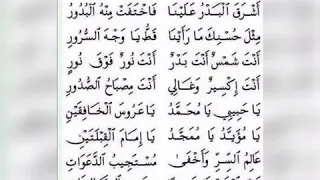 أَشْرَقَ الْبَدْرُ عَلَيْنَا فَاخْتَفَتْ مِنْهُ الْبُدُورُ
مِثْلَ حُسْنِكَ مَا رَأَيْنَا قَطُّ يَا وَجْهَ السُّرُورِ
أَنْتَ شَمْسٌ أَنْتَ بَدْرٌ أَنْتَ نُورٌ فَوْقَ نُورٍ
أَنْتَ إِكْسِيرٌ وَغَالِي أَنْتَ مِصْبَاحُ الصُّدُورِ
يَا حَبِيبِي يَا مُحَمَّدُ يَا عَرُوسَ الْخَافِقَيْنِ
يَا مُؤَيَّدُ يَا مُمَجَّدُ يَا إِمَامَ الْقِبْلَتَيْنِ
عَالِمُ السِّرِّ وَأَخْفَى مُسْتَجِيبُ الدَّعَوَاتِ